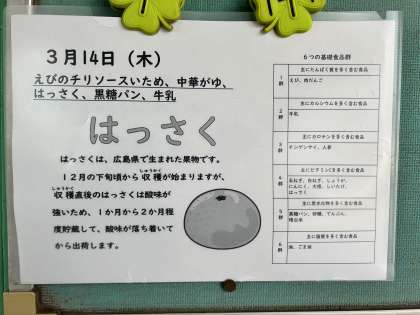 3月14日（木）
えびのチリソースいため、中華がゆ、
はっさく、黒糖パン、牛乳
はっさく
はっさくは、広島県で生まれた果物です。
１２月の下旬頃から収穫が始まりますが、
しゅうかく
収穫直後のはっさくは酸味が
しゅうかく
強いため、１か月から２か月程
度貯蔵して、酸味が落ち着いて
から出荷します。
６つの基礎食品群
1群
主にたんぱく質を多く含む食品
えび、肉だんご
2群
主にカルシウムを多く含む食品
牛乳
3群
主にカロテンを多く含む食品
チンゲンサイ、人参
4群
主にビタミンCを多く含む食品
玉ねぎ、白ねぎ、しょうが、
にんにく、大根、しいたけ、
はっさく
5群
主に炭水化物を多く含む食品
黒糖パン、砂糖、でんぷん、
精白米
6群
主に脂質を多く含む食品
油、ごま油